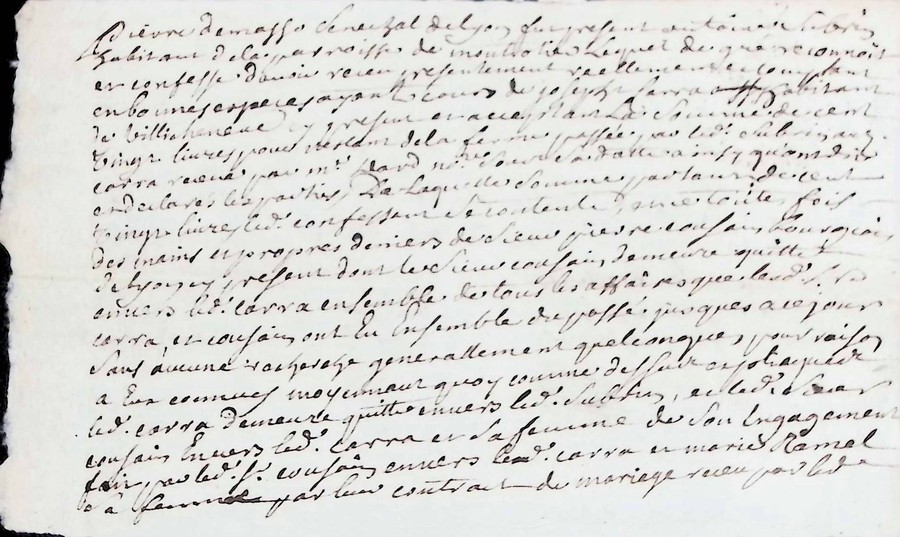 Pierre demasso Senechal de Lyon fut present antoine Subrin
habitant dela parroisse de montrotier Lequel de gré reconnoit
et confesse d'avoir receu presentement reellement et comptant
en bonnes especes ayant cours de joseph Carra habitant
de Villecheneve icy present et acceptant La Somme de cent
vingt livres pour restant dela ferme passée par led. Subrin aux
carra receue par me. nore. Sous Sa datte ainsy qu'ont dit
et declaré les parties, De Laquelle Somme partant de cent
vingt livres led. confessant Se contente, une toutes fois
des mains et propres deniers de Sieur pierre cousin bourgeois
de Lyon icy present dont le Sieur cousin demeure quitte
envers led. carra ensemble de tous les affaires que led. Sr.
carra, et cousin ont Eu Ensemble du passé jusques a ce jour
Sans aucune recherche generallement quelconque, pour raison
a Eux connues moyennant quoy comme dessus est expliqué
led. carra demeure quitte envers led. Subrin, et led. Sieur
cousin Envers led. carra et Sa femme de Son Engagement
fait par led. Sr. cousin envers led. carra et marie Ramel
Sa femme par leur contract de mariage receu par led